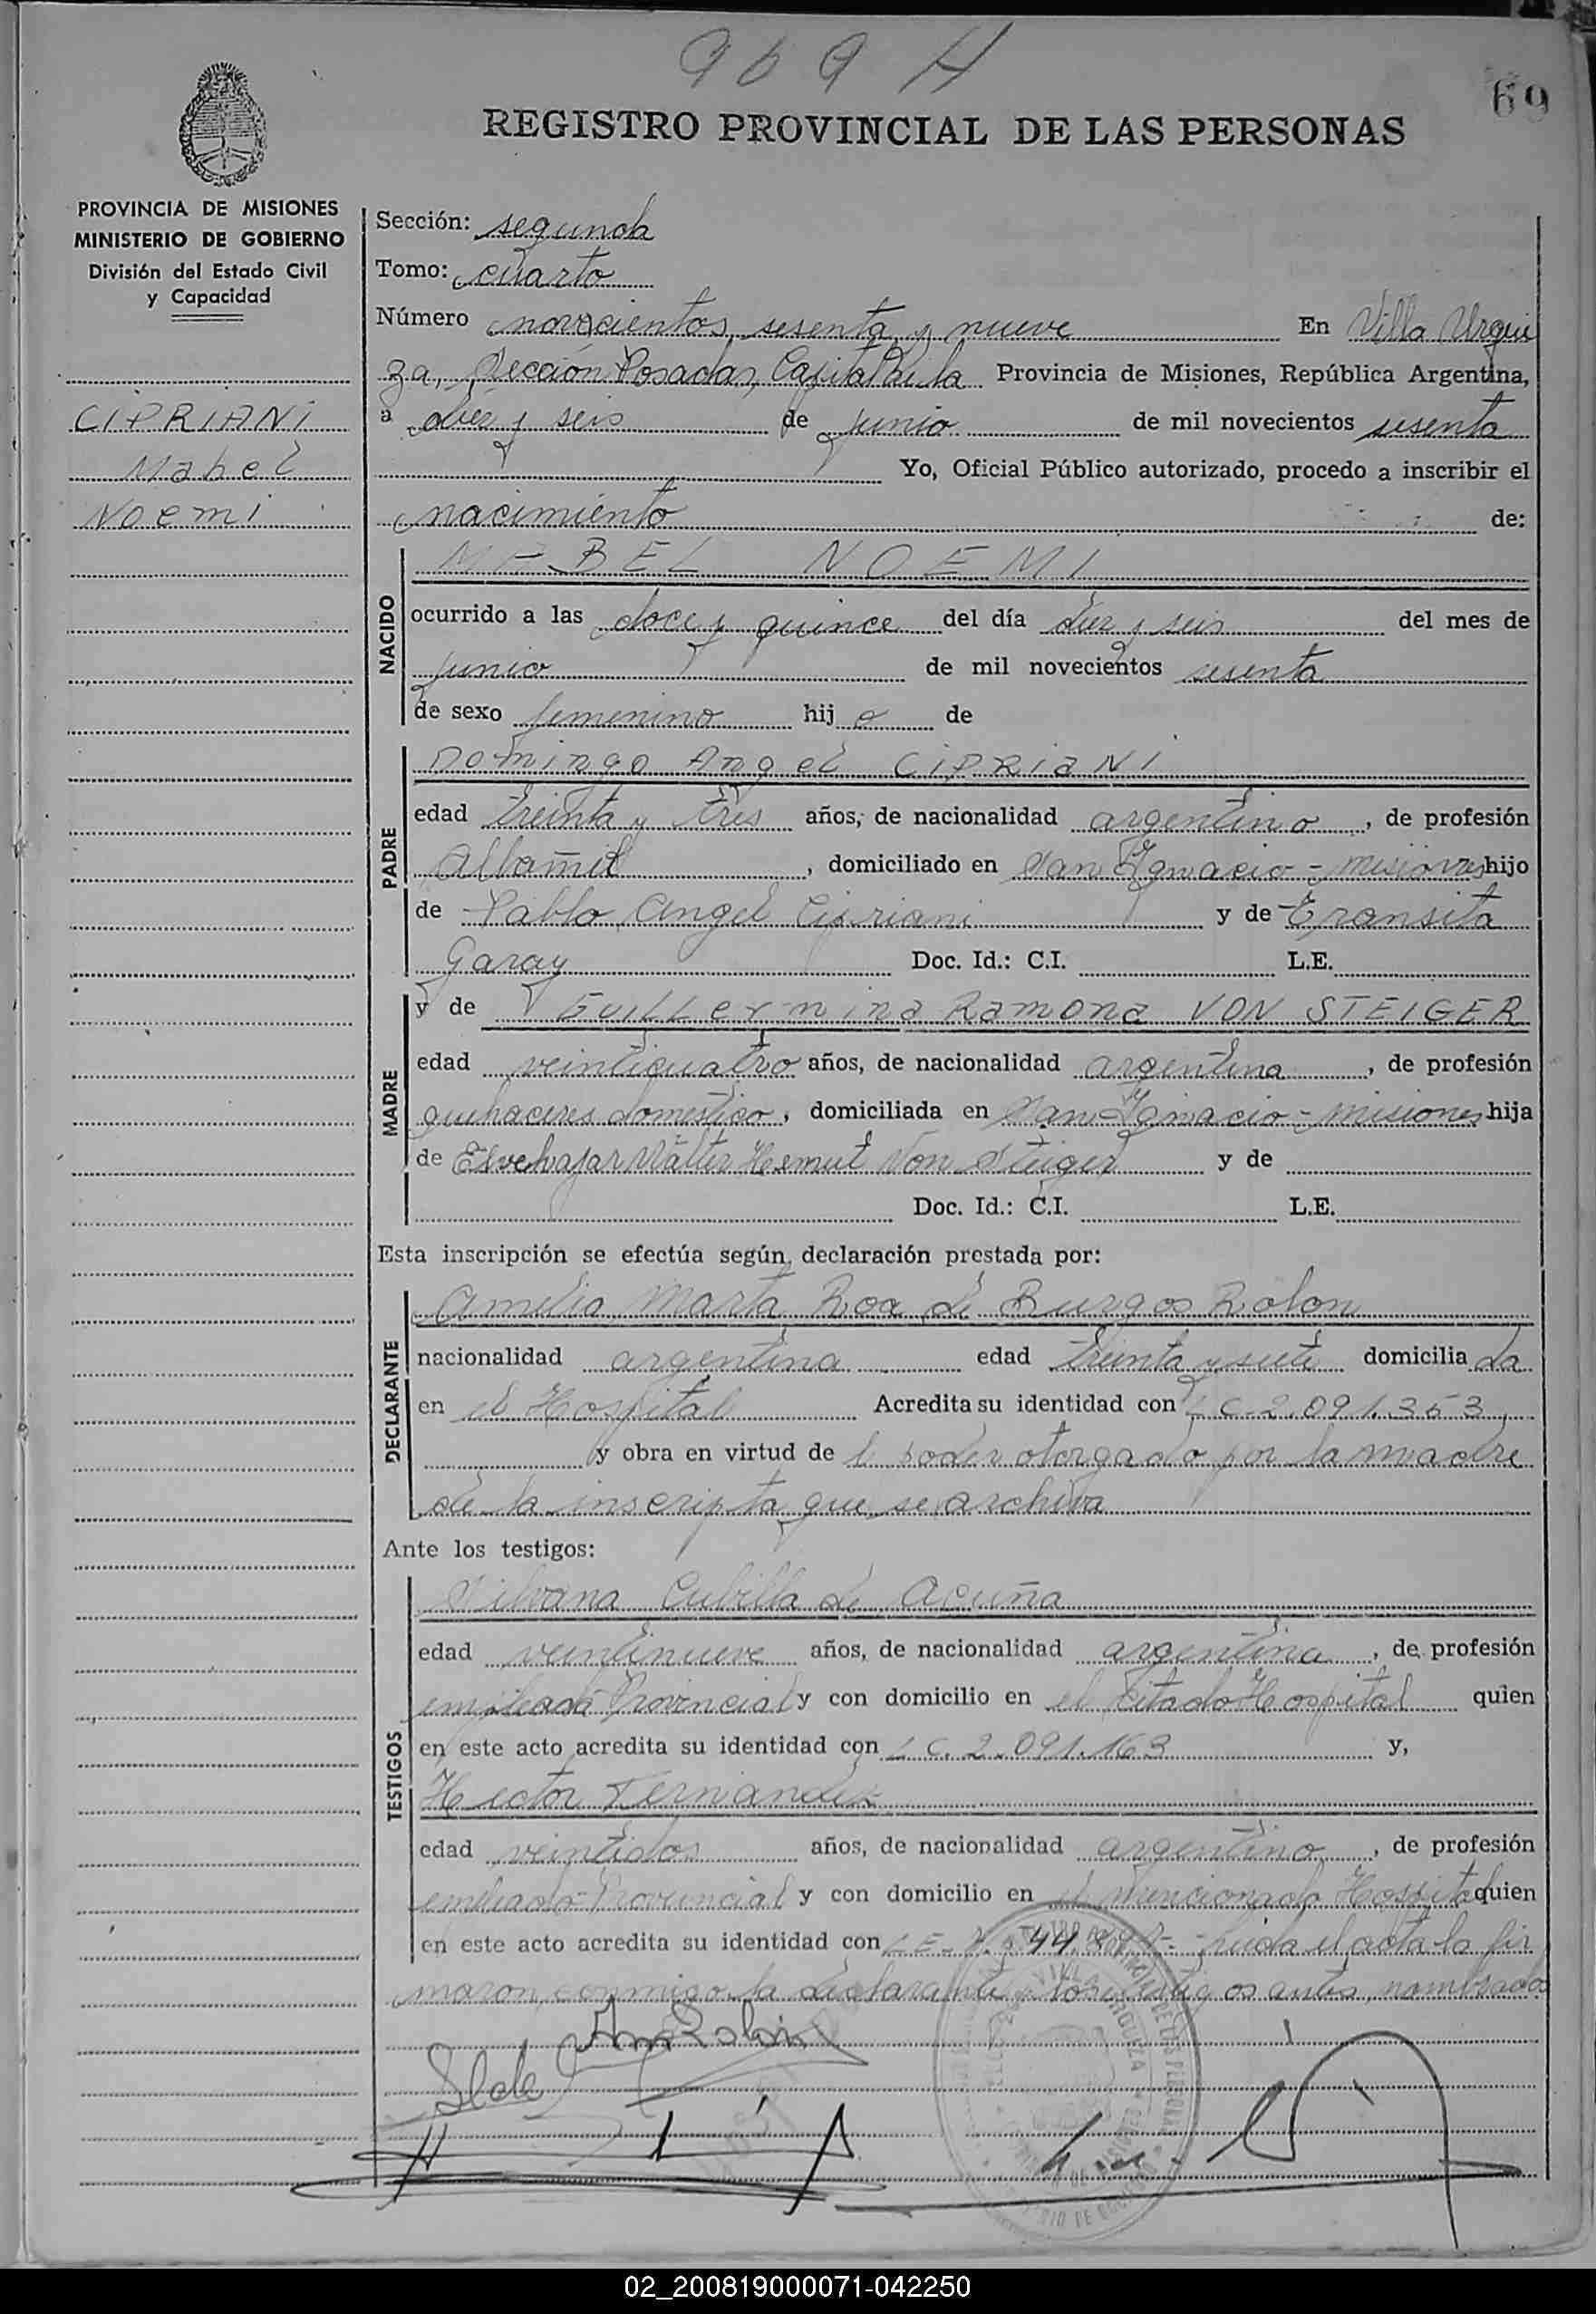 969 H
69
REGISTRO PROVINCIAL DE LAS PERSONAS
PROVINCIA DE MISIONES
MINISTERIO DE GOBIERNO
División del Estado Civil
y Capacidad
CIPRIANI
Mabel
Noemi
Sección: segunda
Tomo: cuarto
Número novecientos sesenta y nueve En Villa Urqui
za, Sección Posadas, Capital de la Provincia de Misiones, República Argentina,
a diez y seis de junio de mil novecientos sesenta
Yo, Oficial Público autorizado, procedo a inscribir el
nacimiento de:
NACIDO
MABEL NOEMI
ocurrido a las doce y quince del día diez y seis del mes de
junio de mil novecientos sesenta
de sexo femenino hij a de
PADRE
Domingo Angel CIPRIANI
edad treinta y tres años, de nacionalidad argentino, de profesión
Albañil, domiciliado en San Ignacio - Misiones hijo
de Pablo Angel Cipriani y de Transita
Garay Doc. Id.: C.I. L.E.
MADRE
y de Guillermina Ramona VON STEIGER
edad veinticuatro años, de nacionalidad argentina, de profesión
quehaceres domestico, domiciliada en San Ignacio - Misiones hija
de Walter Hemut Von Steiger y de
Doc. Id.: C.I. L.E.
Esta inscripción se efectúa según declaración prestada por:
DECLARANTE
Amelia Marta Roa de Burgos Rolon
nacionalidad argentina edad treinta y siete domicilia da
en el Hospital Acredita su identidad con L C. 2.091.353
y obra en virtud de el poder otorgado por la madre
de la inscripta que se archiva
Ante los testigos:
TESTIGOS
Silvana Cubilla de Acuña
edad veintinueve años, de nacionalidad argentina, de profesión
empleada Provincial y con domicilio en el citado Hospital quien
en este acto acredita su identidad con L C. 2.091.163 y,
Hector Fernandez
edad veintidos años, de nacionalidad argentino, de profesión
empleado Provincial y con domicilio en el mencionado Hospital quien
en este acto acredita su identidad con L E. leida el acta la fir
maron conmigo la declarante y los testigos antes nombrados
02_200819000071-042250